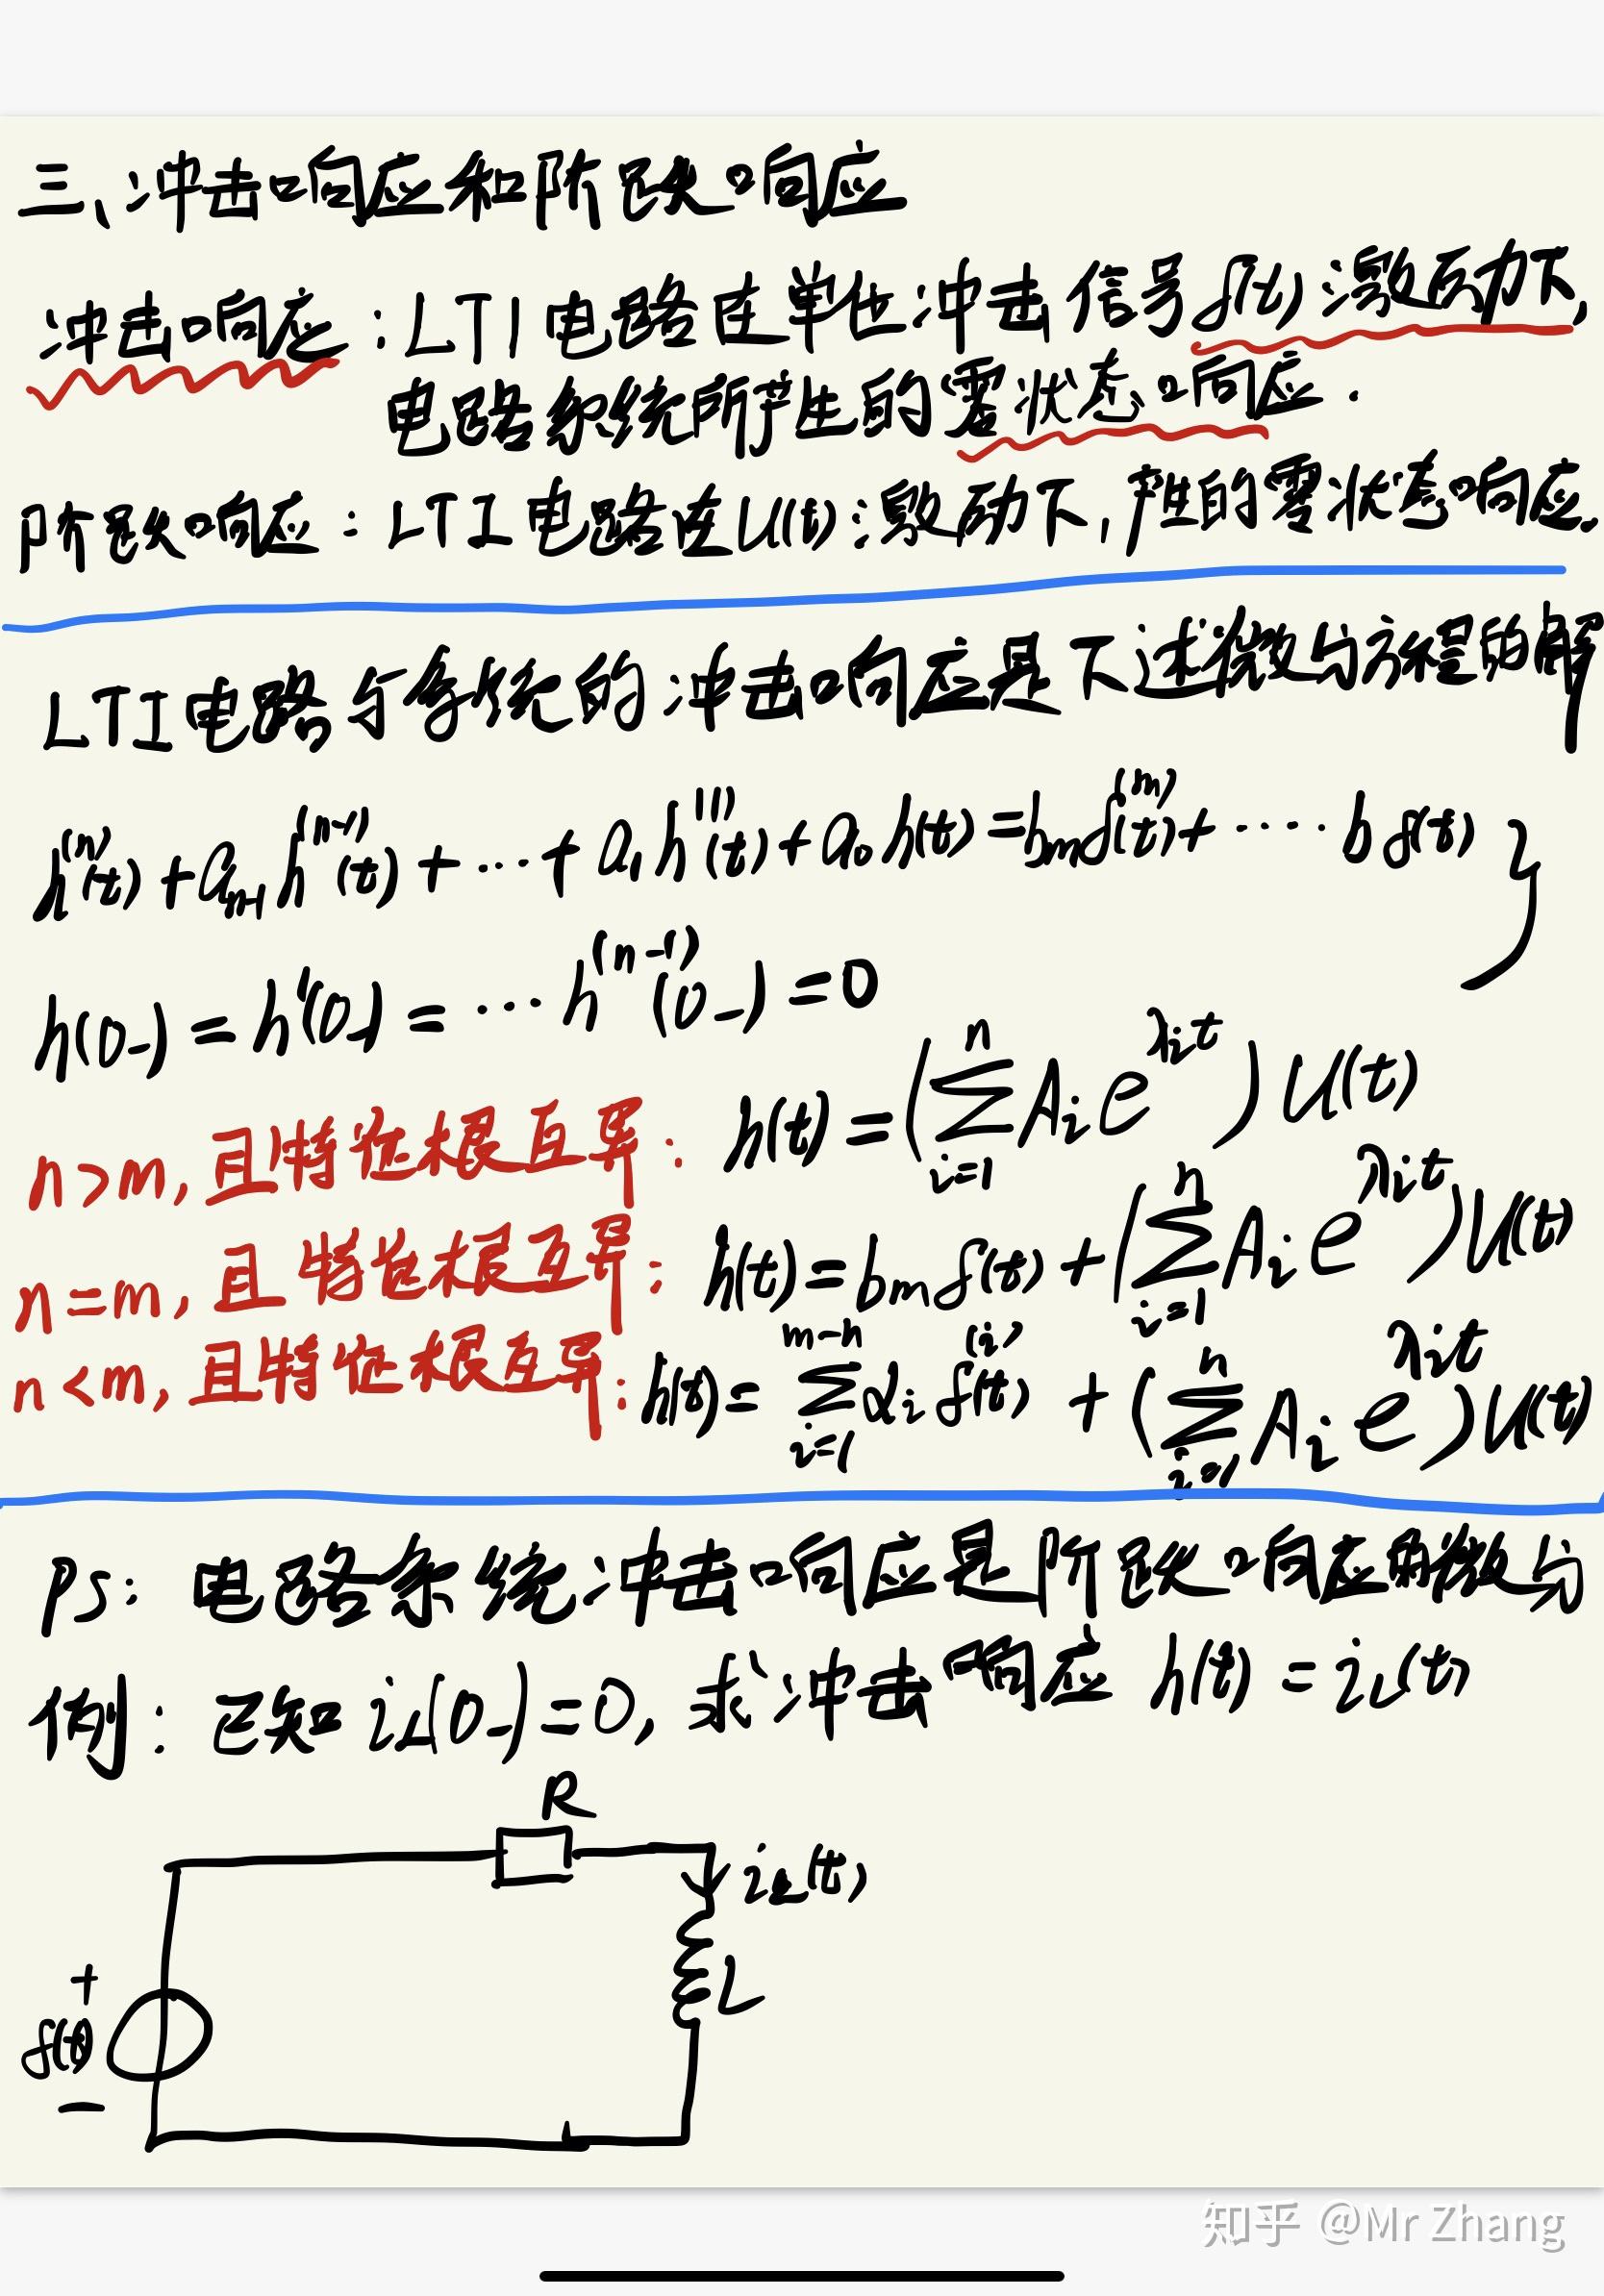 三、冲击响应和阶跃响应
冲击响应：LTI 电路在单位冲击信号δ(t)激励下，
电路系统所产生的零状态响应.
阶跃响应：LTI 电路在U(t)激励下，产生的零状态响应.
LTI 电路与系统的冲击响应是下述微分方程的解
h^(n)(t) + a_{n-1} h^(n-1)(t) + … + a_1 h^(1)(t) + a_0 h(t) = b_m δ^(m)(t) + ····· b δ(t) }
h(0_-) = h'(0_-) = … h^(n-1)(0_-) = 0
n>m, 且特征根互异： h(t) = (∑_{i=1}^{n} A_i e^{λ_i t}) U(t)
n=m, 且特征根互异： h(t) = b_m δ(t) + (∑_{i=1}^{n} A_i e^{λ_i t}) U(t)
n<m, 且特征根互异： h(t) = ∑_{i=1}^{m-n} α_i δ^(i)(t) + (∑_{i=1}^{n} A_i e^{λ_i t}) U(t)
PS： 电路系统冲击响应是阶跃响应的微分
例： 已知 i_L(0_-) = 0, 求冲击响应 h(t) = i_L(t)
R
i_L(t)
+
δ(t)
L
−
知乎 @Mr Zhang